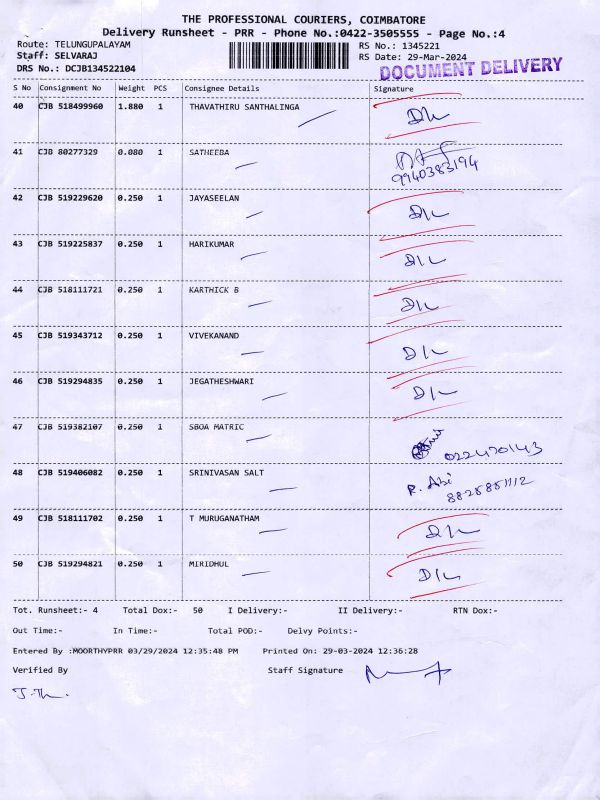 THE PROFESSIONAL COURIERS, COIMBATORE
Delivery Runsheet - PRR - Phone No.:0422-3505555 - Page No.:4
Route: TELUNGUPALAYAM RS No.: 1345221
Staff: SELVARAJ RS Date: 29-Mar-2024
DRS No.: DCJB134522104 DOCUMENT DELIVERY
S No Consignment No Weight PCS Consignee Details Signature
40 CJB 518499960 1.880 1 THAVATHIRU SANTHALINGA D/L
41 CJB 80277329 0.080 1 SATHEEBA
9940383194
42 CJB 519229620 0.250 1 JAYASEELAN D/L
43 CJB 519225837 0.250 1 HARIKUMAR D/L
44 CJB 518111721 0.250 1 KARTHICK B D/L
45 CJB 519343712 0.250 1 VIVEKANAND D/L
46 CJB 519294835 0.250 1 JEGATHESHWARI D/L
47 CJB 519382107 0.250 1 SBOA MATRIC
48 CJB 519406082 0.250 1 SRINIVASAN SALT R. Abi
49 CJB 518111702 0.250 1 T MURUGANATHAM D/L
50 CJB 519294821 0.250 1 MIRIDHUL D/L
Tot. Runsheet:- 4 Total Dox:- 50 I Delivery:- II Delivery:- RTN Dox:-
Out Time:- In Time:- Total POD:- Delvy Points:-
Entered By :MOORTHYPRR 03/29/2024 12:35:48 PM Printed On: 29-03-2024 12:36:28
Verified By Staff Signature